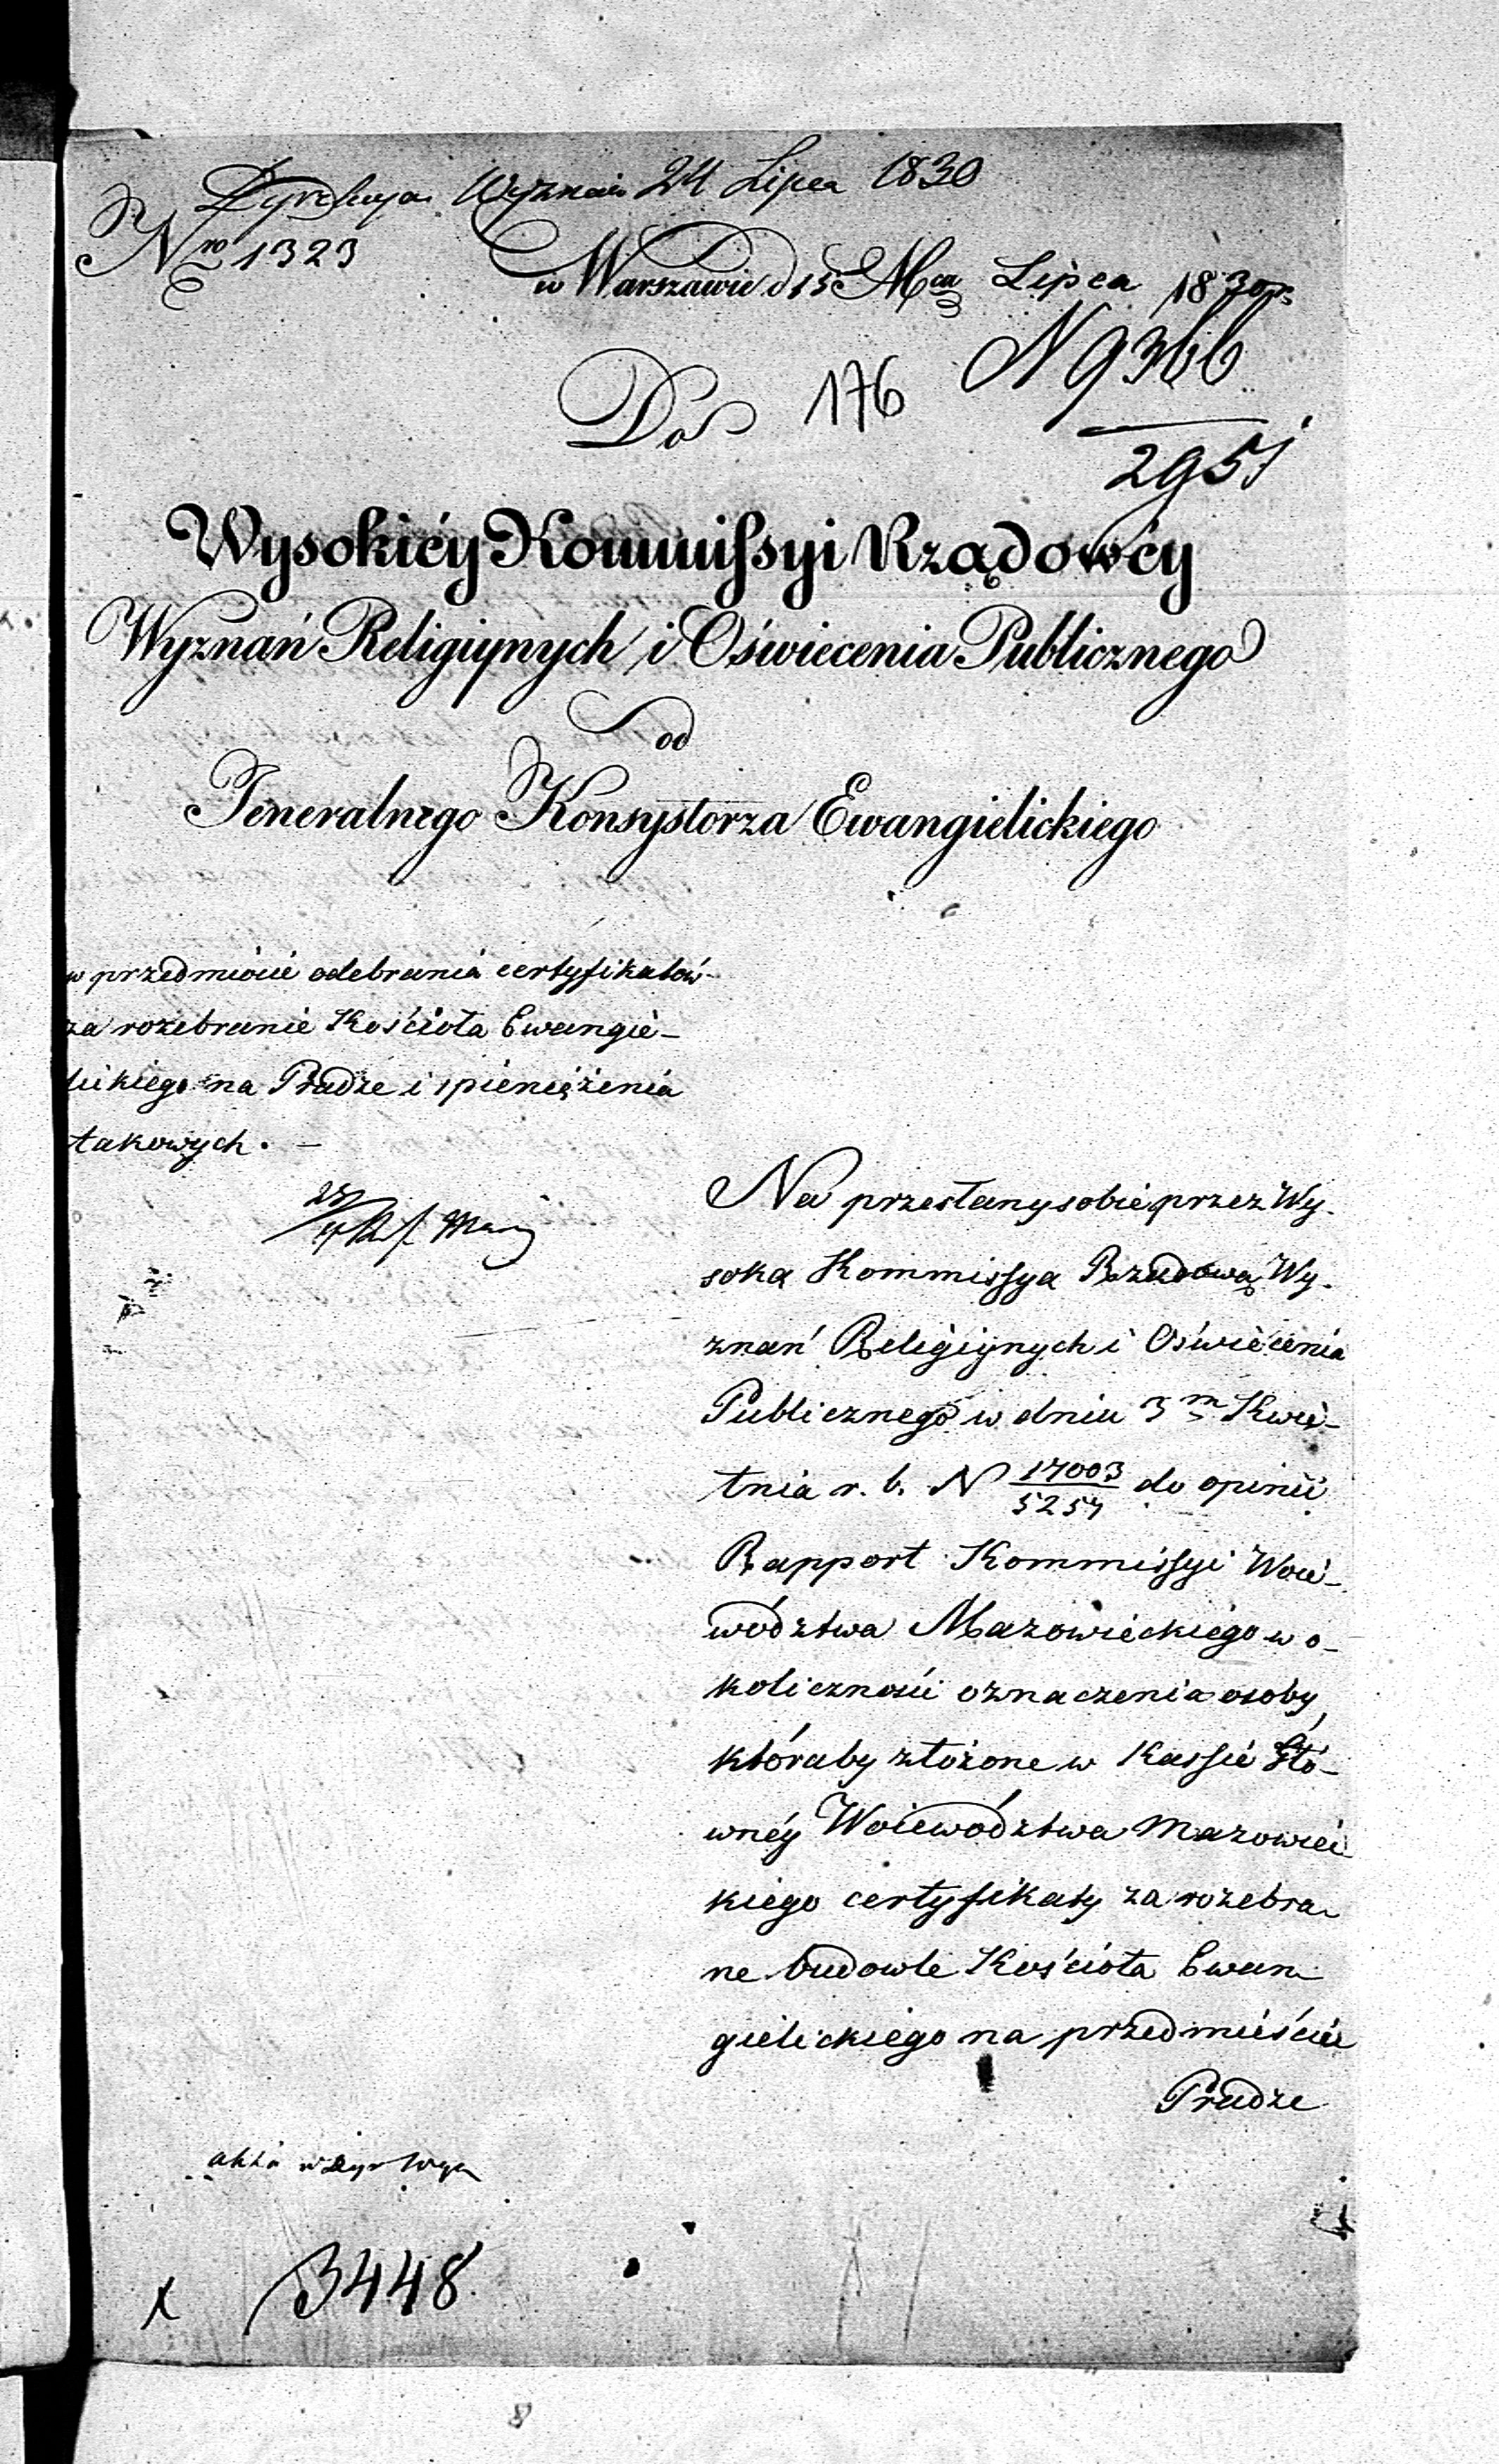 Dyrekcya Wyznań 24 Lipca 1830
Nro 1323
w Warszawie d 15 Mca Lipca 1830 r.
N 9366
2951
Do 176
Wysokiéy Kommissyi Rządowéy
Wyznań Religiynych i Oświecenia Publicznego
od
Jeneralnego Konsystorza Ewangielickiego
w przedmiocie odebrania certyfikatów
za rozebranie Kościoła Ewangie-
lickiego na Pradze i spieniężenia
takowych. —
Na przesłany sobie przez Wy-
soka Kommissya Rządową Wy-
znań Religiynych i Oświecenia
Publicznego w dniu 3 m Kwie-
tnia r. b. N 17003/5257 do opinii
Rapport Kommissyi Woie-
wództwa Mazowieckiego w o-
koliczności oznaczenia osoby,
któraby złożone w Kassie Głó-
wnéy Woiewództwa Mazowiec-
kiego certyfikaty za rozebra-
ne budowle Kościoła Ewan-
gielickiego na przedmieściu
Pradze
akta
3448